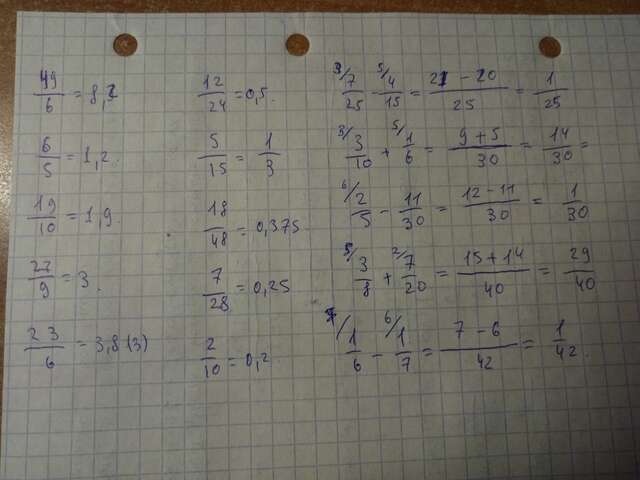 49/6 = 8,2
6/5 = 1,2.
19/10 = 1,9.
27/9 = 3.
23/6 = 3,8(3)
12/24 = 0,5.
5/15 = 1/3
18/48 = 0,375
7/28 = 0,25
2/10 = 0,2
3/ 7/25 - 5/ 4/15 = 21 - 20/25 = 1/25
3/ 3/10 + 5/ 1/6 = 9 + 5/30 = 14/30 =
6/ 2/5 - 11/30 = 12 - 11/30 = 1/30
5/ 3/8 + 2/ 7/20 = 15 + 14/40 = 29/40
7/ 1/6 - 6/ 1/7 = 7 - 6/42 = 1/42.